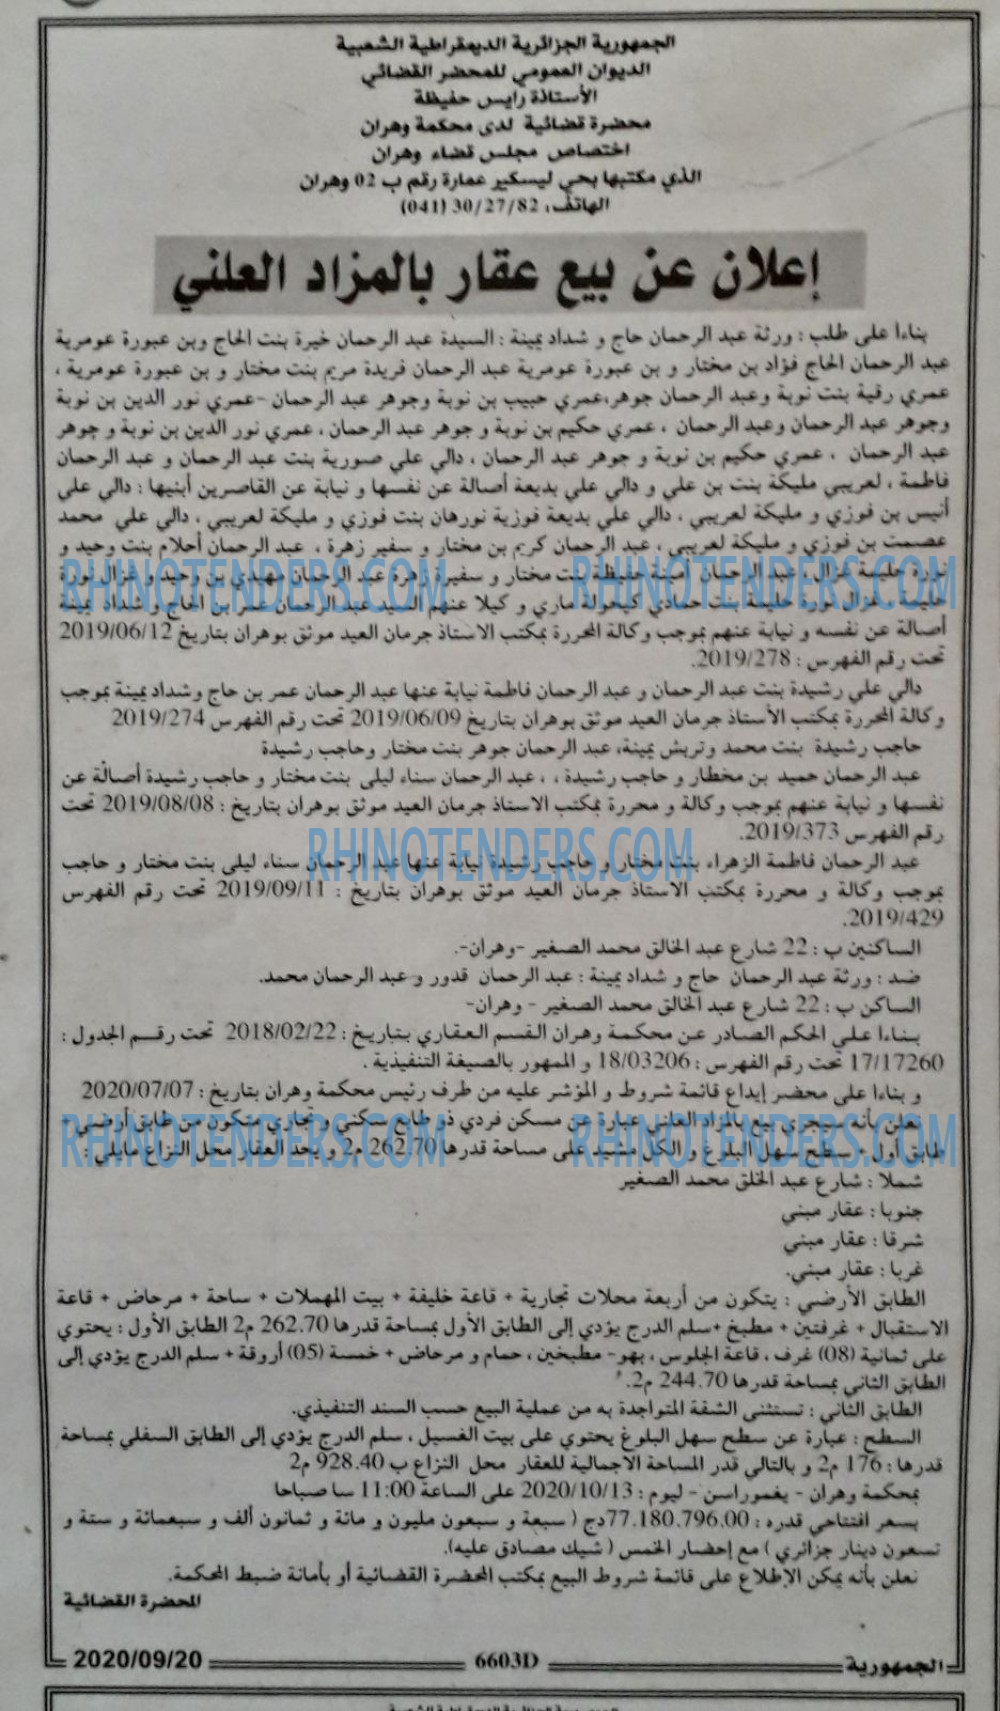 الجمهورية الجزائرية الديمقراطية الشعبية
الديوان العمومي للمحضر القضائي
الأستاذة رايس حفيظة
محضرة قضائية لدى محكمة وهران
اختصاص مجلس قضاء وهران
الذي مكتبها بحي ليسكير عمارة رقم ب 02 وهران
الهاتف: 30/27/82 (041)
إعلان عن بيع عقار بالمزاد العلني
بناءا على طلب : ورثة عبد الرحمان حاج و شداد يمينة : السيدة عبد الرحمان خيرة بنت الحاج وبن عبورة عومرية
عبد الرحمان الحاج فؤاد بن مختار و بن عبورة عومرية عبد الرحمان فريدة مريم بنت مختار و بن عبورة عومرية ،
عمري رقية بنت نوبة وعبد الرحمان جوهر،عمري حبيب بن نوبة وجوهر عبد الرحمان -عمري نور الدين بن نوبة
وجوهر عبد الرحمان وعبد الرحمان ، عمري حكيم بن نوبة و جوهر عبد الرحمان ، عمري نور الدين بن نوبة و جوهر
عبد الرحمان ، عمري حكيم بن نوبة و جوهر عبد الرحمان ، دالي علي صورية بنت عبد الرحمان و عبد الرحمان
فاطمة ، لعريبي مليكة بنت بن علي و دالي علي بديعة أصالة عن نفسها و نيابة عن القاصرين أبنيها : دالي علي
أنيس بن فوزي و مليكة لعريبي ، دالي علي بديعة فوزية نورهان بنت فوزي و مليكة لعريبي ، دالي علي محمد
عصمت بن فوزي و مليكة لعريبي ، عبد الرحمان كريم بن مختار و سفير زهرة ، عبد الرحمان أحلام بنت وحيد و
نورة حليمة غزال ، عبد الرحمان أمينة حفيظة بنت مختار و سفيرة زهرة عبد الرحمان مهيدي بن وحيد و غزال نورة
حليمة ، غزال نورة حليمة بنت حمادي كيحولة ماري و كيلا عنهم السيد عبد الرحمان عمر بن الحاج و شداد يمينة
أصالة عن نفسه و نيابة عنهم بموجب وكالة المحررة بمكتب الاستاذ جرمان العيد موثق بوهران بتاريخ 2019/06/12
تحت رقم الفهرس : 2019/278.
دالي علي رشيدة بنت عبد الرحمان و عبد الرحمان فاطمة نيابة عنها عبد الرحمان عمر بن حاج وشداد يمينة بموجب
وكالة المحررة بمكتب الأستاذ جرمان العيد موثق بوهران بتاريخ 2019/06/09 تحت رقم الفهرس 2019/274
حاجب رشيدة بنت محمد وتربش يمينة، عبد الرحمان جوهر بنت مختار وحاجب رشيدة
عبد الرحمان حميد بن مخطار و حاجب رشيدة ، ، عبد الرحمان سناء ليلى بنت مختار و حاجب رشيدة أصالة عن
نفسها و نيابة عنهم بموجب وكالة و محررة بمكتب الاستاذ جرمان العيد موثق بوهران بتاريخ : 2019/08/08 تحت
رقم الفهرس 2019/373.
عبد الرحمان فاطمة الزهراء بنت مختار و حاجب رشيدة نيابة عنها عبد الرحمان سناء ليلى بنت مختار و حاجب
بموجب وكالة و محررة بمكتب الاستاذ جرمان العيد موثق بوهران بتاريخ : 2019/09/11 تحت رقم الفهرس
2019/429.
الساكنين ب : 22 شارع عبد الخالق محمد الصغير -وهران-.
ضد : ورثة عبد الرحمان حاج و شداد يمينة : عبد الرحمان قدور و عبد الرحمان محمد.
الساكن ب : 22 شارع عبد الخالق محمد الصغير - وهران-
بناءا على الحكم الصادر عن محكمة وهران القسم العقاري بتاريخ : 2018/02/22 تحت رقم الجدول :
17/17260 تحت رقم الفهرس : 18/03206 و الممهور بالصيغة التنفيذية .
و بناءا على محضر إيداع قائمة شروط و المؤشر عليه من طرف رئيس محكمة وهران بتاريخ : 2020/07/07
نعلن بأنه سيجرى بيع بالمزاد العلني عبارة عن مسكن فردي ذو طابع سكني و تجاري متكون من طابق أرضي +
طابق أول + سطح سهل البلوغ و الكل مشيد على مساحة قدرها 262.70 م2 و يحد العقار محل النزاع مايلي :
شملا : شارع عبد الخلق محمد الصغير
جنوبا : عقار مبني
شرقا : عقار مبني
غربا : عقار مبني.
الطابق الأرضي : يتكون من أربعة محلات تجارية + قاعة خليفة + بيت المهملات + ساحة + مرحاض + قاعة
الاستقبال + غرفتين + مطبخ +سلم الدرج يؤدي إلى الطابق الأول بمساحة قدرها 262.70 م2 الطابق الأول : يحتوي
على ثمانية (08) غرف ، قاعة الجلوس ، بهو- مطبخين ، حمام و مرحاض + خمسة (05) أروقة + سلم الدرج يؤدي إلى
الطابق الثاني بمساحة قدرها 244.70 م2.
الطابق الثاني : تستثنى الشقة المتواجدة به من عملية البيع حسب السند التنفيذي.
السطح : عبارة عن سطح سهل البلوغ يحتوي على بيت الغسيل ، سلم الدرج يؤدي إلى الطابق السفلي بمساحة
قدرها : 176 م2 و بالتالي قدر المساحة الاجمالية للعقار محل النزاع ب 928.40 م2
بمحكمة وهران - يغموراسن - ليوم : 2020/10/13 على الساعة 11:00 سا صباحا
بسعر افتتاحي قدره : 77.180.796.00دج ( سبعة و سبعون مليون و مائة و ثمانون ألف و سبعمائة و ستة و
تسعون دينار جزائري ) مع إحضار الخمس ( شيك مصادق عليه).
نعلن بأنه يمكن الإطلاع على قائمة شروط البيع بمكتب المحضرة القضائية أو بأمانة ضبط المحكمة.
المحضرة القضائية
الجمهورية 6603D 2020/09/20
RHINOTENDERS.COM RHINOTENDERS.COM
RHINOTENDERS.COM
RHINOTENDERS.COM RHINOTENDERS.COM